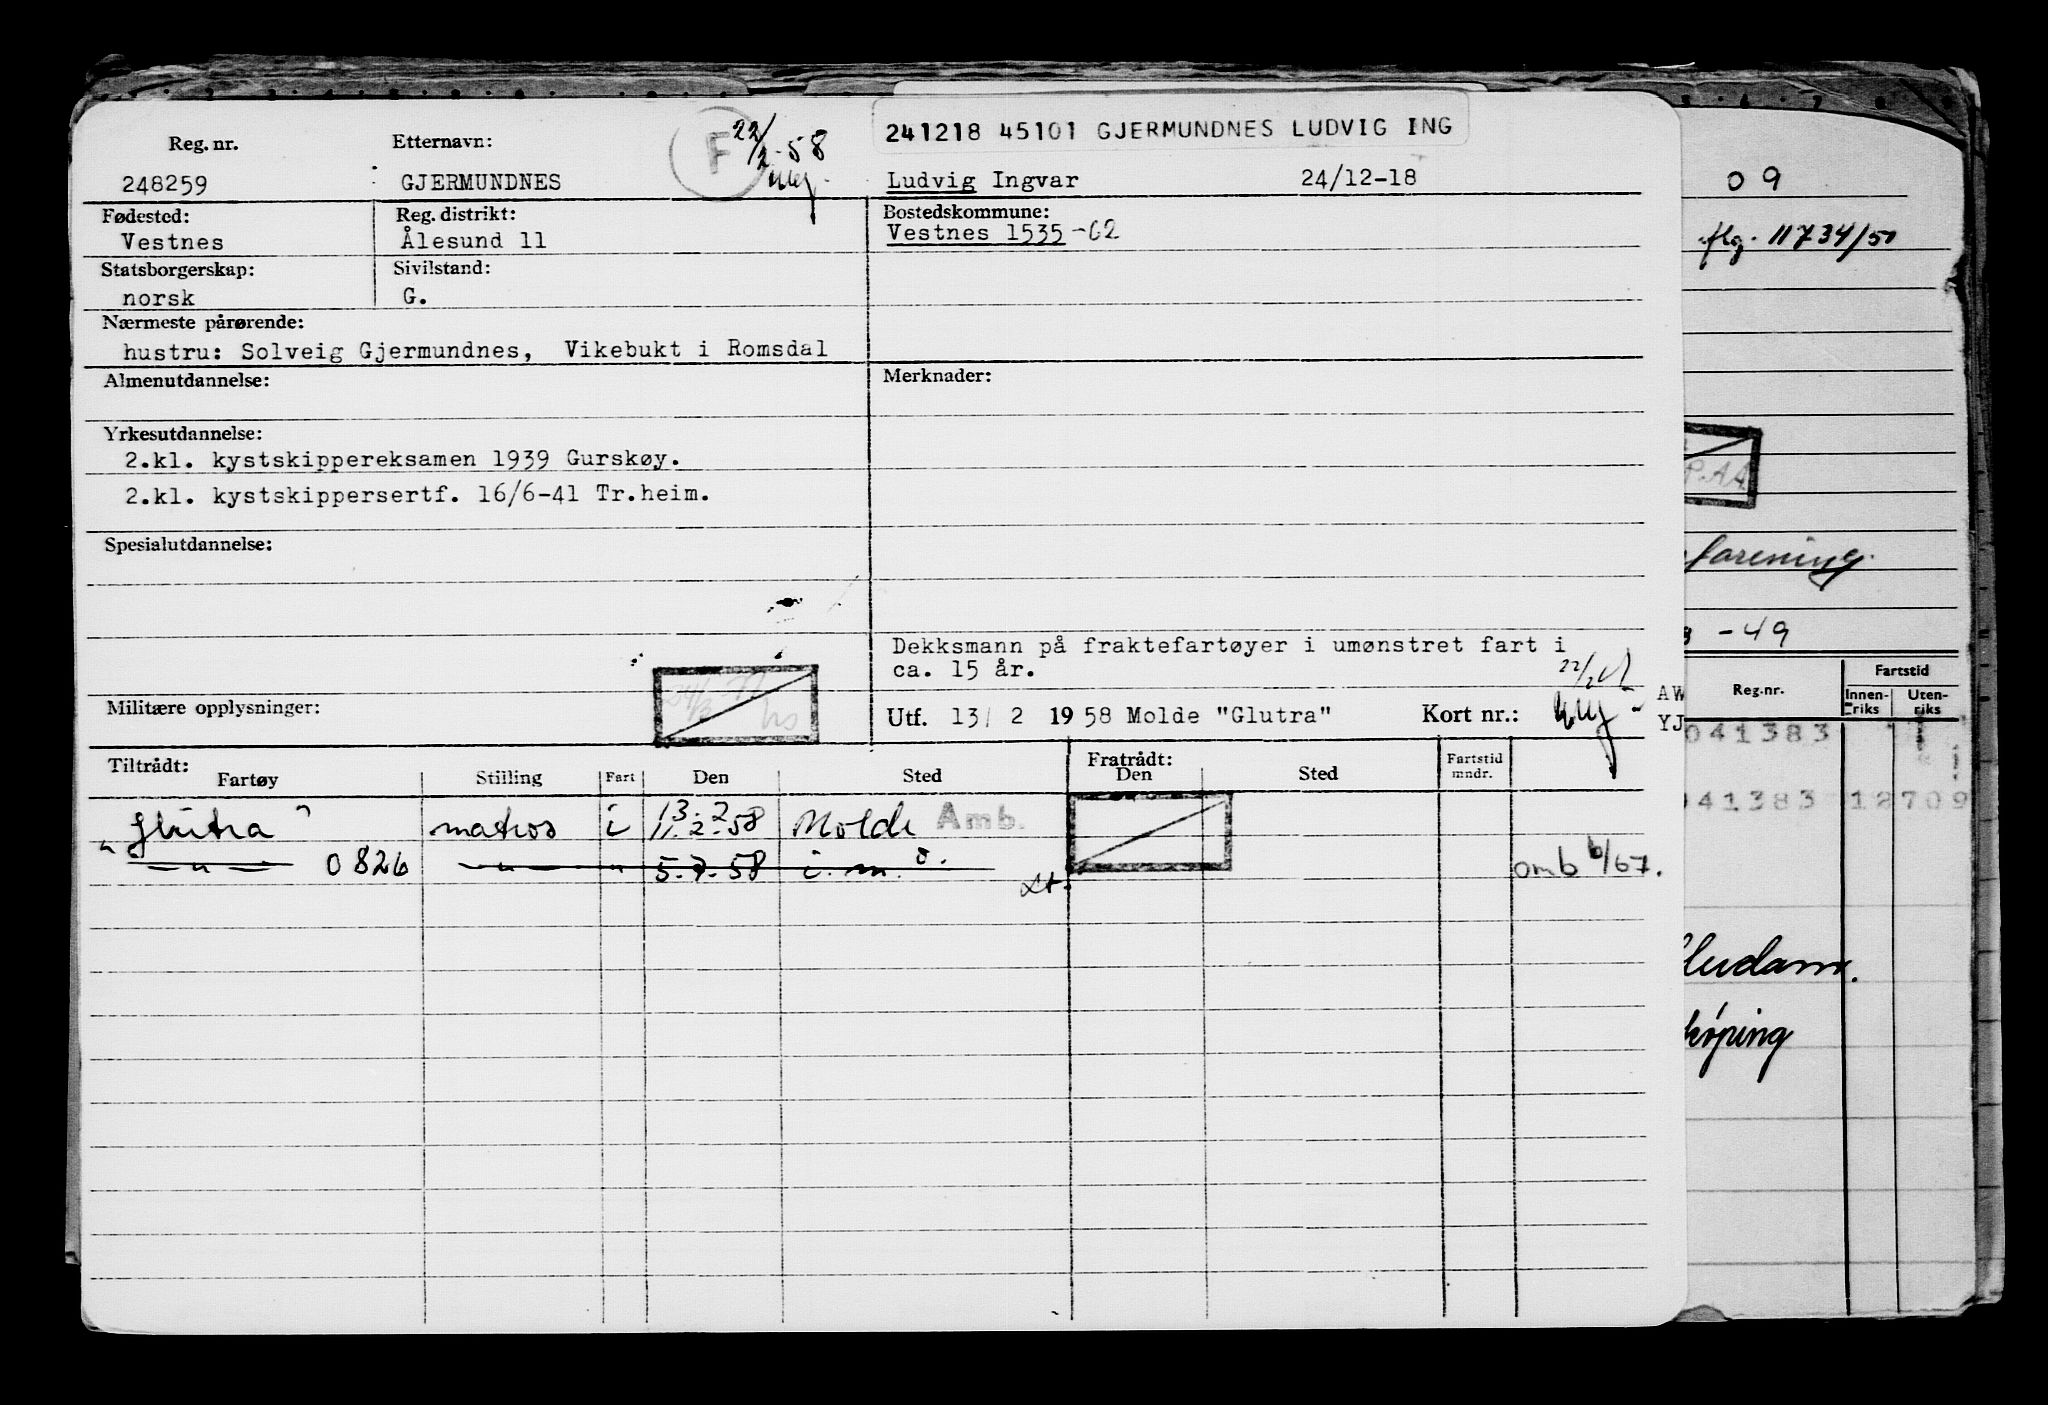 241218 45101 GJERMUNDNES LUDVIG ING
Reg. nr. Etternavn: F 22/2-58
248259 GJERMUNDNES Ludvig Ingvar 24/12-18
Fødested: Reg. distrikt: Bostedskommune:
Vestnes Ålesund 11 Vestnes 1535-02
Statsborgerskap: Sivilstand:
norsk G.
Nærmeste pårørende:
hustru: Solveig Gjermundnes, Vikebukt i Romsdal
Almenutdannelse: Merknader:
Yrkesutdannelse:
2.kl. kystskippereksamen 1939 Gurskøy.
2.kl. kystskippersertf. 16/6-41 Tr.heim.
Spesialutdannelse:
Dekksmann på fraktefartøyer i umønstret fart i
ca. 15 år.
Militære opplysninger: Utf. 13/ 2 1958 Molde "Glutra" Kort nr.:
Tiltrådt: Fratrådt:
Fartøy Stilling Fart Den Sted Den Sted Fartstid mndr.
"Glutra" matros i 13.2 11.2.58 Molde Amb.
— " — 0826 — " — " 5.7.58 i. m. o. omb 6/67.
09
flg. 11734/50
P.A.A.
forening.
-49
AW
YJ
Reg.nr. Fartstid
Innen-riks Uten-riks
041383
041383 12709
köping